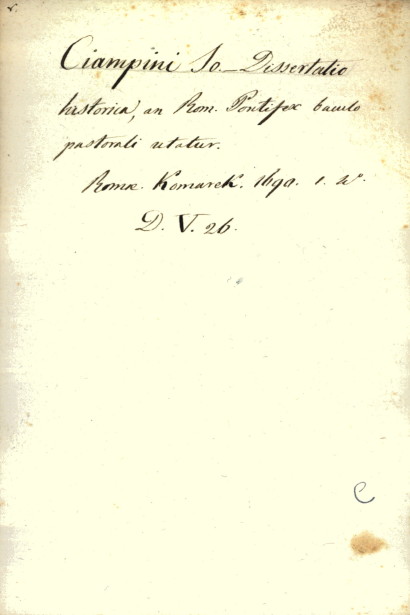 v.
Ciampini Jo. _ Dissertatio
historica, an Rom. Pontifex baculo
pastorali utatur.
Romæ. Komarek. 1690. 1. 4°.
D. V. 26.
C